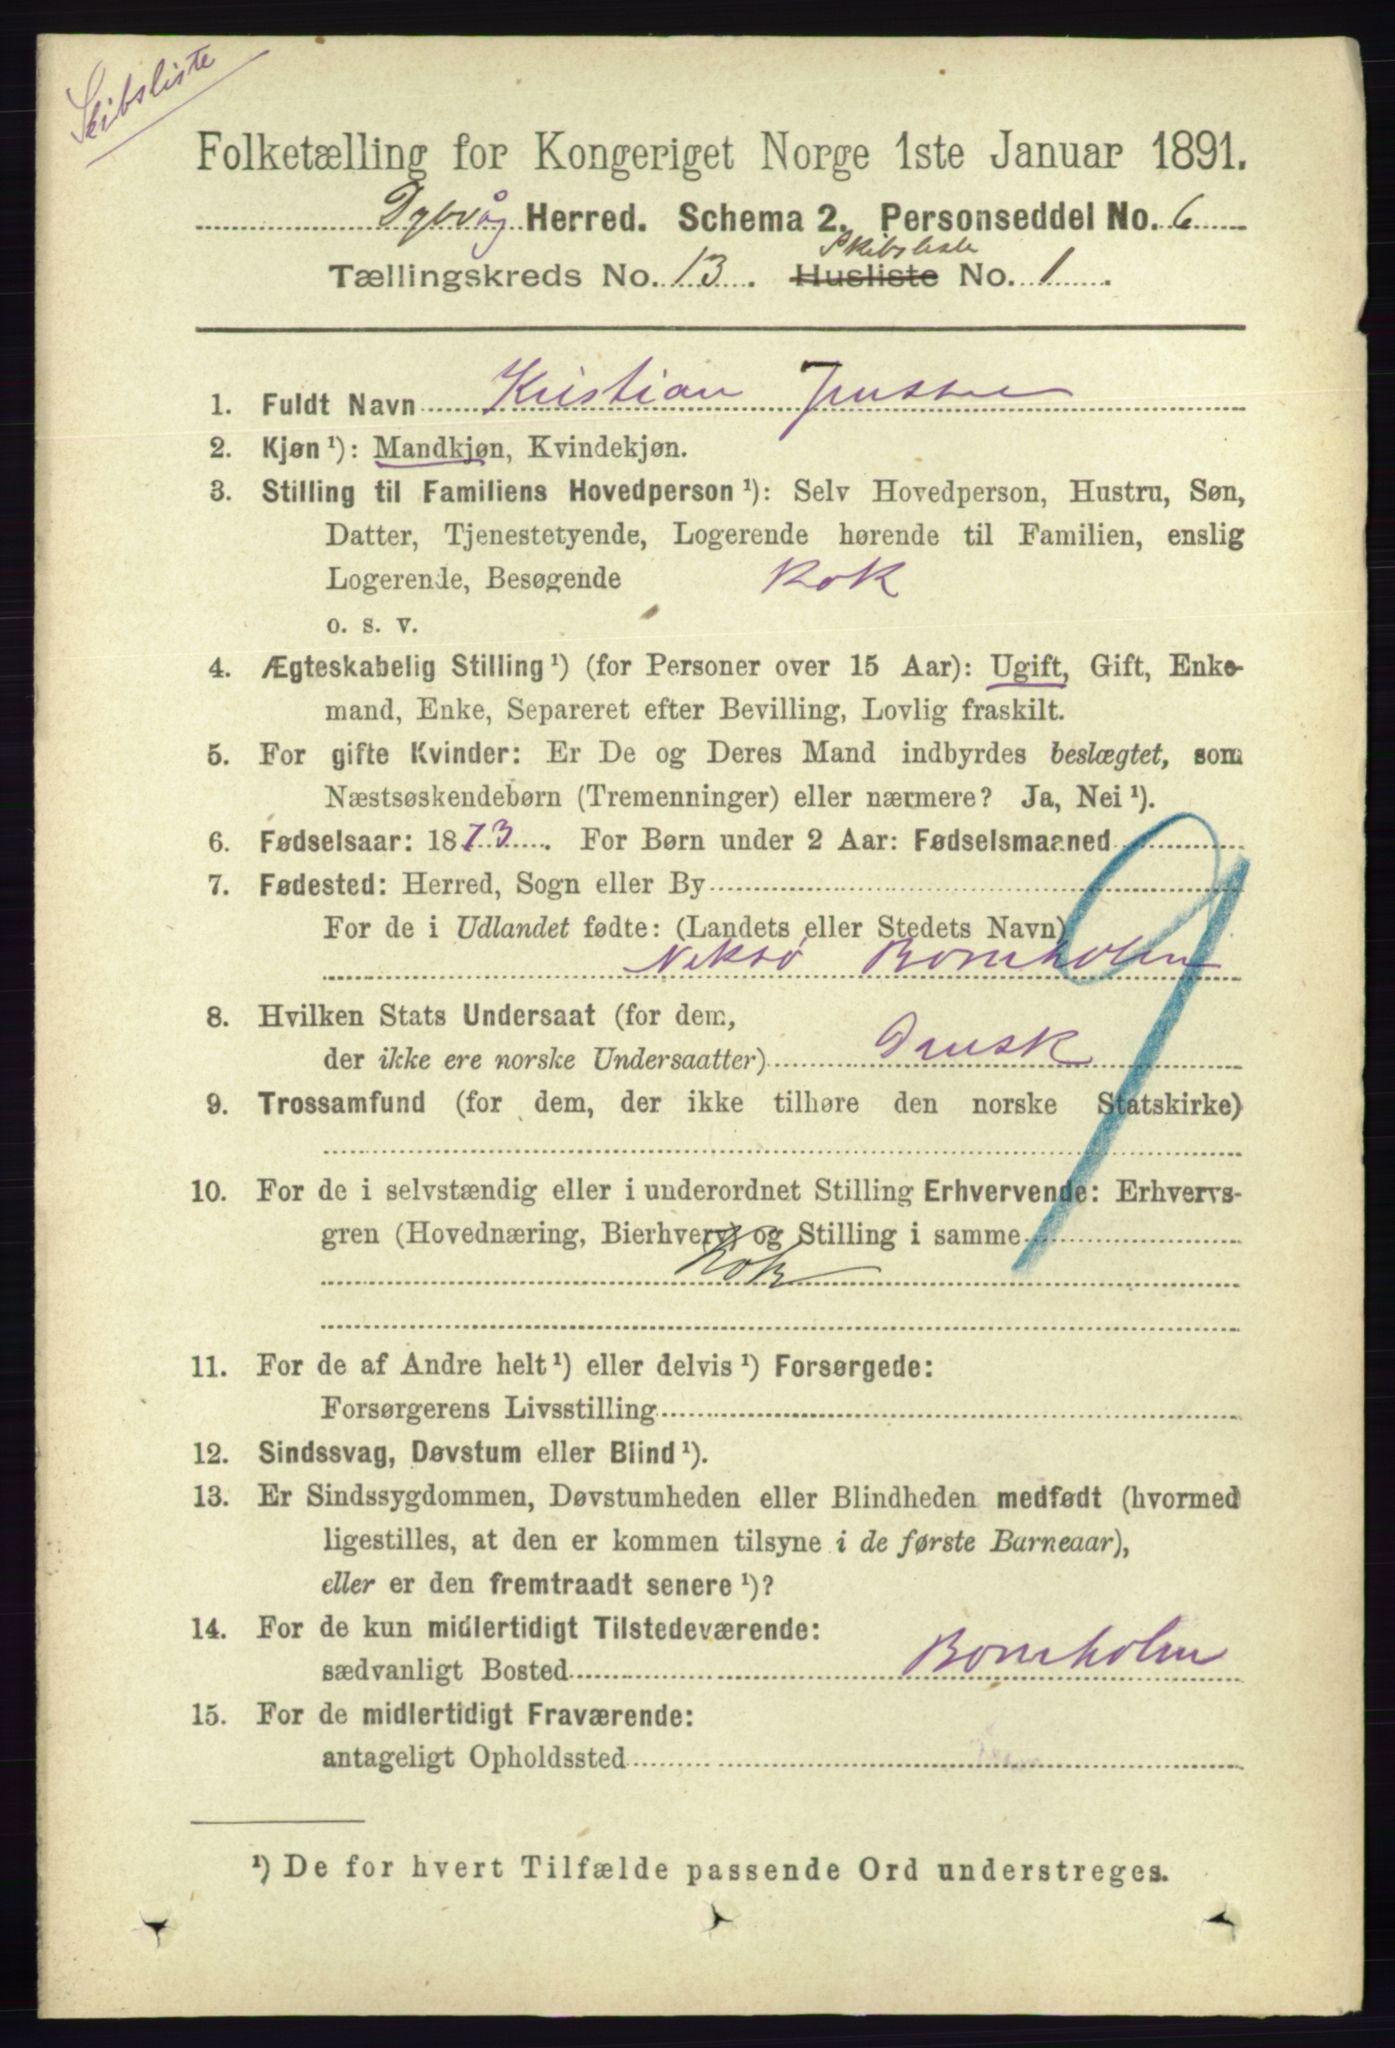 Skibsliste
Folketælling for Kongeriget Norge 1ste Januar 1891.
Dybvåg Herred. Schema 2. Personseddel No. 6
Skibsliste
Tællingskreds No. 13. Husliste No. 1.
1. Fuldt Navn Kristian Jenssen
2. Kjøn¹): Mandkjøn, Kvindekjøn.
3. Stilling til Familiens Hovedperson¹): Selv Hovedperson, Hustru, Søn,
Datter, Tjenestetyende, Logerende hørende til Familien, enslig
Logerende, Besøgende Kok
o. s. v.
4. Ægteskabelig Stilling¹) (for Personer over 15 Aar): Ugift, Gift, Enke-
mand, Enke, Separeret efter Bevilling, Lovlig fraskilt.
5. For gifte Kvinder: Er De og Deres Mand indbyrdes beslægtet, som
Næstsøskendebørn (Tremenninger) eller nærmere? Ja, Nei¹).
6. Fødselsaar: 1873. For Børn under 2 Aar: Fødselsmaaned
7. Fødested: Herred, Sogn eller By
For de i Udlandet fødte: (Landets eller Stedets Navn)
Neksø Bornholm
8. Hvilken Stats Undersaat (for dem,
der ikke ere norske Undersaatter) Dansk
9. Trossamfund (for dem, der ikke tilhøre den norske Statskirke)
10. For de i selvstændig eller i underordnet Stilling Erhvervende: Erhvervs-
gren (Hovednæring, Bierhverv) og Stilling i samme
Kok
11. For de af Andre helt¹) eller delvis¹) Forsørgede:
Forsørgerens Livsstilling
12. Sindssvag, Døvstum eller Blind¹).
13. Er Sindssygdommen, Døvstumheden eller Blindheden medfødt (hvormed
ligestilles, at den er kommen tilsyne i de første Barneaar),
eller er den fremtraadt senere¹)?
14. For de kun midlertidigt Tilstedeværende:
sædvanligt Bosted Bornholm
15. For de midlertidigt Fraværende:
antageligt Opholdssted
¹) De for hvert Tilfælde passende Ord understreges.